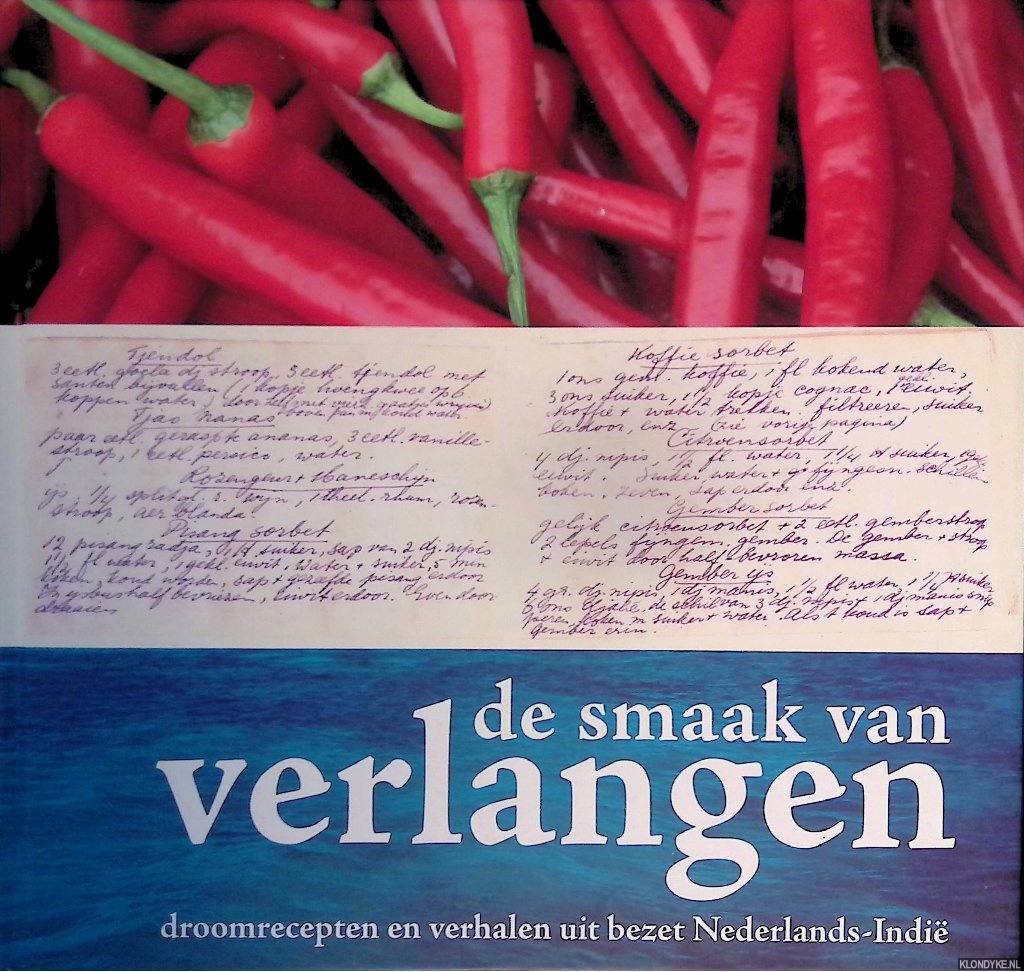 Tjendol
3 eetl. goela dj stroop, 3 eetl. tjendol met
santen bijvullen (1 kopje hoengkwee op
koppen water,
boven pan koud water
Tjao nanas
paar eetl. geraspte ananas, 3 eetl. vanille-
stroop, 1 eetl. persico, water.
Rozengeur + Maneschijn
ijs, 1/4 split wijn, 1 theel. rhum, rozen-
stroop,
Pisang sorbet
12 pisang radja, suiker, sap van 2 dj. nipis
1 1/2 fl water, 1 gekl. eiwit. water + suiker, 5 min
koken, koud worden, sap + gezeefde pisang erdoor
half bevriezen, eiwit erdoor. Even door
draaien
Koffie sorbet
1 ons gem. koffie, 1 fl kokend water,
3 ons suiker, 1 1/2 kopje cognac, 1 eiwit,
koffie + water trekken. filtreeren, suiker
erdoor, enz (zie vorige pagina)
Citroensorbet
4 dj. nipis, 1 1/2 fl. water, 1 1/4 suiker,
eiwit. Suiker, water + fijngesn. schillen
koken, zeven, sap erdoor enz.
Gember sorbet
gelijk citroensorbet + 2 eetl. gemberstroop
2 lepels fijngem. gember. De gember + stroop
+ eiwit door half bevroren massa.
Gember ijs
4 gr. dj. nipis, 1 dj manis, 1 1/2 fl. water, 1 1/4 suiker
5 ons djahe, de schil van 3 dj. nipis + 1 dj manis
koken m suiker + water. Als 't koud is sap +
gember erin.
de smaak van
verlangen
droomrecepten en verhalen uit bezet Nederlands-Indië
KLONDYKE.NL